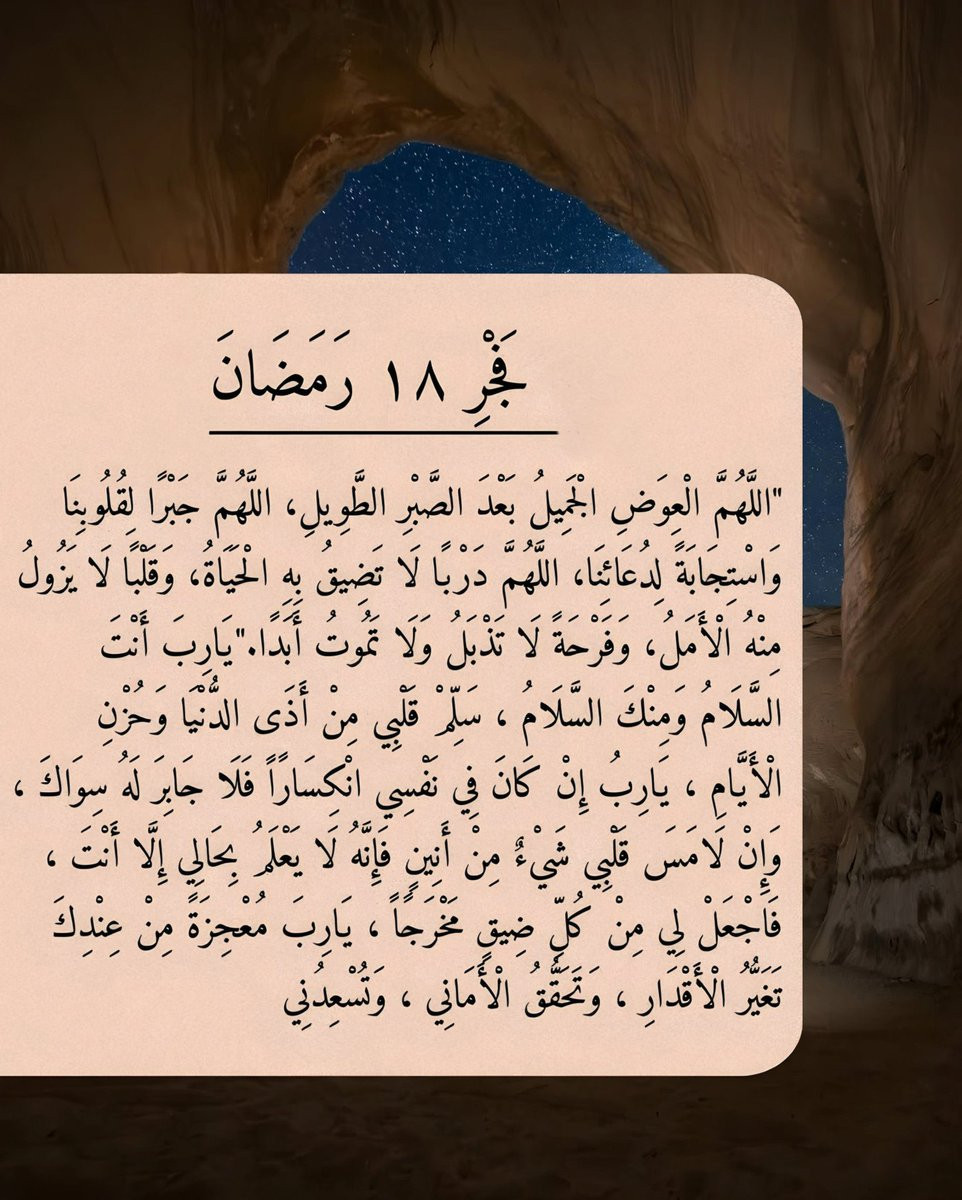 فَجْرِ ١٨ رَمَضَانَ
"اللَّهُمَّ الْعِوَضِ الْجَمِيلُ بَعْدَ الصَّبْرِ الطَّوِيلِ، اللَّهُمَّ جَبْرًا لِقُلُوبِنَا
وَاسْتِجَابَةً لِدُعَائِنَا، اللَّهُمَّ دَرْبًا لَا تَضِيقُ بِهِ الْحَيَاةُ، وَقَلْبًا لَا يَزُولُ
مِنْهُ الْأَمَلُ، وَفَرْحَةً لَا تَذْبَلُ وَلَا تَمُوتُ أَبَدًا."يَارِبَ أَنْتَ
السَّلَامُ وَمِنْكَ السَّلَامُ ، سَلِّمْ قَلْبِي مِنْ أَذَى الدُّنْيَا وَحُزْنِ
الْأَيَّامِ ، يَارِبُ إِنْ كَانَ فِي نَفْسِي انْكِسَارًاً فَلَا جَابِرَ لَهُ سِوَاكَ ،
وَإِنْ لَامَسَ قَلْبِي شَيْءٌ مِنْ أَنِينٍ فَإِنَّهُ لَا يَعْلَمُ بِحَالِي إِلَّا أَنْتَ ،
فَاجْعَلْ لِي مِنْ كُلِّ ضِيقٍ مَخْرَجًاً ، يَارِبَ مُعْجِزَةً مِنْ عِنْدِكَ
تَغَيُّرُ الْأَقْدَارِ ، وَتَحَقُّقُ الْأَمَانِي ، وَتُسْعِدُنِي